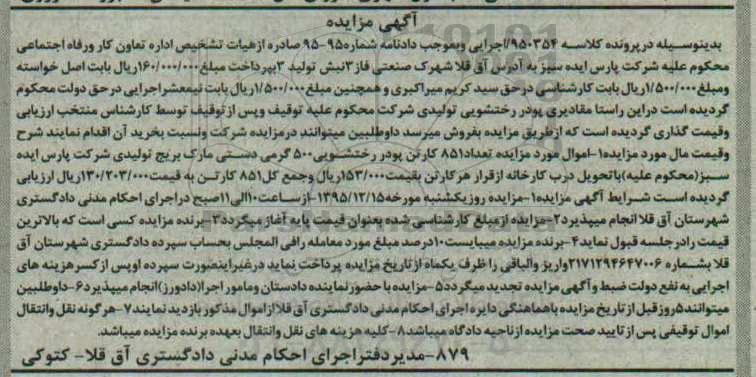 آگهی مزایده
بدینوسیله در پرونده کلاسه ۹۵۰۳۵۴/اجرایی وبموجب دادنامه شماره۹۵-۹۵ صادره ازهیات تشخیص اداره تعاون کار ورفاه اجتماعی
محکوم علیه شرکت پارس ایده سبز به آدرس آق قلا شهرک صنعتی فاز۳نبش تولید ۳بپرداخت مبلغ۱۶۰/۰۰۰/۰۰۰ریال بابت اصل خواسته
ومبلغ۱/۵۰۰/۰۰۰ریال بابت کارشناسی درحق سید کریم میراکبری و همچنین مبلغ۱/۵۰۰/۰۰۰ریال بابت نیمعشراجرایی درحق دولت محکوم
گردیده است دراین راستا مقادیری پودر رختشویی تولیدی شرکت محکوم علیه توقیف وپس ازتوقیف توسط کارشناس منتخب ارزیابی
وقیمت گذاری گردیده است که ازطریق مزایده بفروش میرسد داوطلبین میتوانند درمزایده شرکت ونسبت بخرید آن اقدام نمایند شرح
وقیمت مال مورد مزایده۱-اموال مورد مزایده تعداد۸۵۱ کارتن پودر رختشویی۵۰۰ گرمی دستی مارک بریج تولیدی شرکت پارس ایده
سبز(محکوم علیه)باتحویل درب کارخانه ازقرار هرکارتن بقیمت۱۵۳/۰۰۰ریال وجمع کل۸۵۱ کارتن به قیمت۱۳۰/۲۰۳/۰۰۰ریال ارزیابی
گردیده است شرایط آگهی مزایده۱-مزایده روزیکشنبه مورخه۱۳۹۵/۱۲/۱۵-ازساعت۱۰الی۱۱صبح دراجرای احکام مدنی دادگستری
شهرستان آق قلاانجام میپذیرد۲-مزایده ازمبلغ کارشناسی شده بعنوان قیمت پایه آغاز میگردد۳-برنده مزایده کسی است که بالاترین
قیمت رادرجلسه قبول نماید۴-برنده مزایده میبایست۱۰درصد مبلغ مورد معامله رافی المجلس بحساب سپرده دادگستری شهرستان آق
قلا بشماره ۲۱۷۱۲۹۴۶۴۷۰۰۶واریز والباقی را ظرف یکماه ازتاریخ مزایده پرداخت نماید درغیراینصورت سپرده اوپس ازکسرهزینه های
اجرایی به نفع دولت ضبط و آگهی مزایده تجدید میگردد۵-مزایده با حضورنماینده دادستان ومامور اجرا(دادورز)انجام میپذیرد۶-داوطلبین
میتوانند۵روزقبل ازتاریخ مزایده باهماهنگی دایره اجرای احکام مدنی دادگستری آق قلاازاموال مذکور بازدید نمایند۷-هرگونه نقل وانتقال
اموال توقیفی پس ازتایید صحت مزایده ازناحیه دادگاه میباشد۸-کلیه هزینه های نقل وانتقال بعهده برنده مزایده میباشد.
۸۷۹-مدیردفتراجرای احکام مدنی دادگستری آق قلا- کتوکی